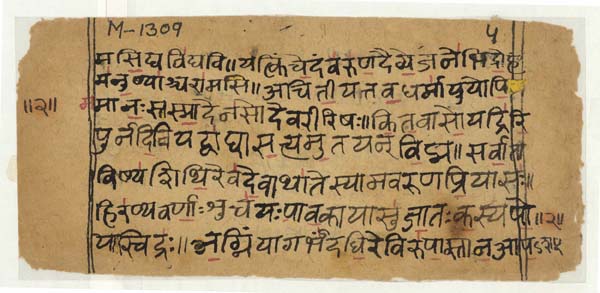 M-1309 ५
मसिद्यविद्यवि॥यत्किंचेदंवरुणदैव्येजनेभिद्रोहं
मनुष्याश्चरामसि॥अचितीयत्तवधर्मायुयोपि
॥२॥ मानःस्तस्मादेनसोदेवरीरिषः॥कितवासोयद्रिरि
पुर्नदिवियद्वाघासत्यमुतयनंविद्म॥सर्वाता
विष्यशिथिरेवदेवाथातेस्यामवरुणप्रियासः॥
हिरण्यवर्णाःशुचयःपावकायासुजातःकस्यपो ॥२॥
यास्विंद्रः॥अग्निंयागर्भंदधिरेविरूपास्तानआप